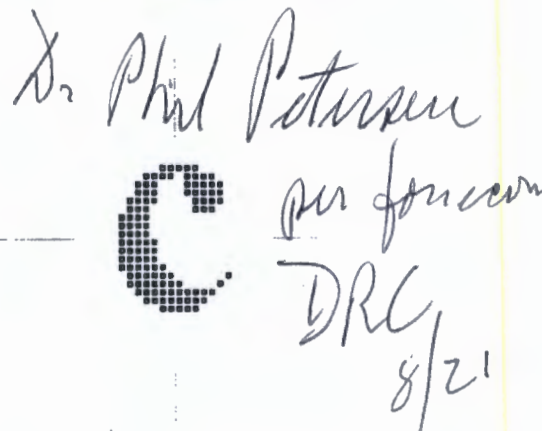 Dr Phil Petersen
C
per fonecon
DRC
8/21